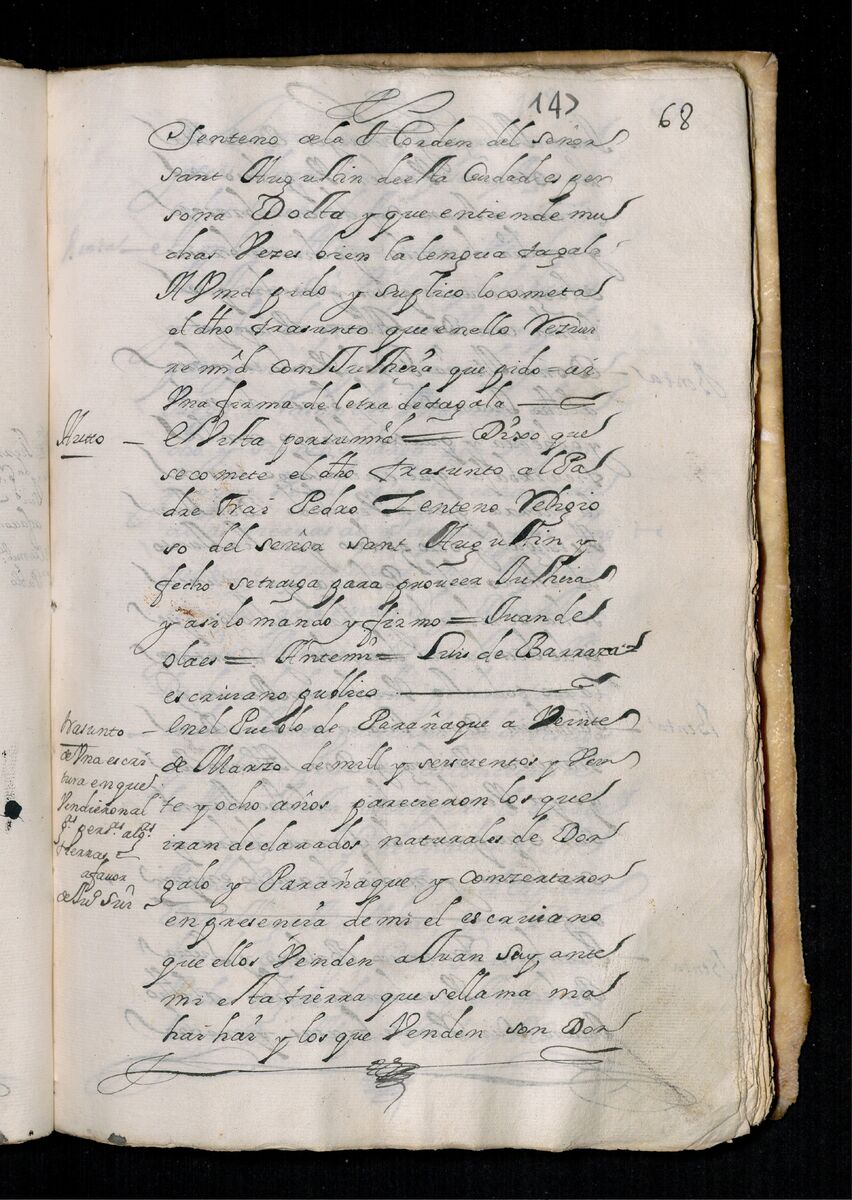 147
68
Senteno de la Horden del señor
sant Augustin de esta Ciudad es per
sona Docta y que entiende mu
chas Vezes bien la lengua tagala
A Vmd pido y suplico lo cometa
el dho trasunto que en ello Rezivi
re mrd con Justicia que pido = ai
Vna firma de letra de tagala
Autto — E Vista por su md = Dixo que
se comete el dho trasunto al Pa
dre Frai Pedro Zenteno Religio
so del señor sant Augustin y
fecho se traiga para proveer Justicia
y asi lo mando y firmo = Juan de
olaes = Antemi = Luis de Barraza
escrivano publico
trasunto
de Vna escri
tura en que
Vendieron al
gs persas algs
tierras
a favor
de Juo Sui
En el Pueblo de Parañaque a Veinte
de Marzo de mill y seiscientos y Vein
te y ocho años parecieron los que
iran declarados naturales de Don
galo y Parañaque y conzertaron
en presencia de mi el escrivano
que ellos Venden a Juan Suy ante
mi esta tierra que se llama ma
hai hai y los que Venden son Don